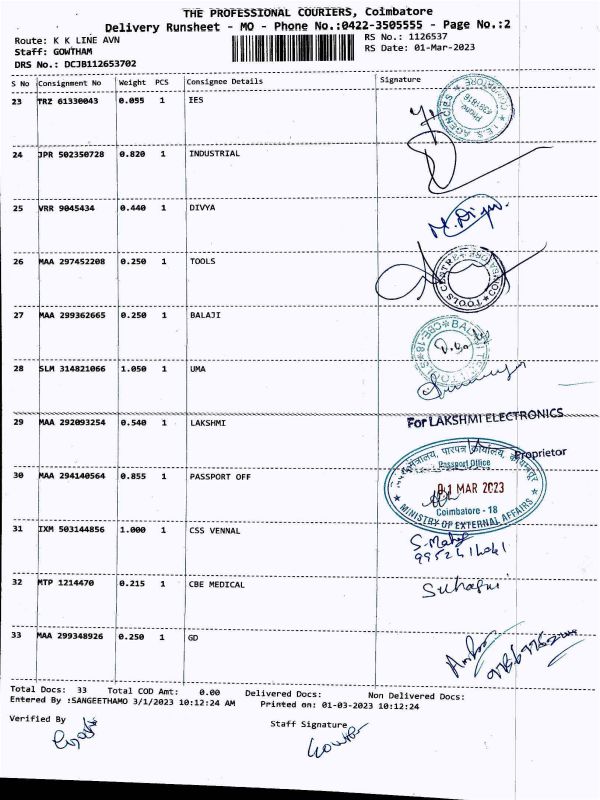 THE PROFESSIONAL COURIERS, Coimbatore
Delivery Runsheet - MO - Phone No.:0422-3505555 - Page No.:2
Route: K K LINE AVN
RS No.: 1126537
Staff: GOWTHAM
RS Date: 01-Mar-2023
DRS No.: DCJB112653702
S No Consignment No Weight PCS Consignee Details Signature
23 TRZ 61330043 0.055 1 IES
24 JPR 502350728 0.820 1 INDUSTRIAL
25 VRR 9045434 0.440 1 DIVYA
26 MAA 297452208 0.250 1 TOOLS
TOOLS CENTRE
27 MAA 299362665 0.250 1 BALAJI
28 SLM 314821066 1.050 1 UMA
29 MAA 292093254 0.540 1 LAKSHMI
For LAKSHMI ELECTRONICS
Proprietor
30 MAA 294140564 0.855 1 PASSPORT OFF
Passport Office
01 MAR 2023
Coimbatore - 18
MINISTRY OF EXTERNAL AFFAIRS
31 IXM 503144856 1.000 1 CSS VENNAL
32 MTP 1214470 0.215 1 CBE MEDICAL
33 MAA 299348926 0.250 1 GD
Total Docs: 33 Total COD Amt: 0.00 Delivered Docs: Non Delivered Docs:
Entered By :SANGEETHAMO 3/1/2023 10:12:24 AM Printed on: 01-03-2023 10:12:24
Verified By
Staff Signature